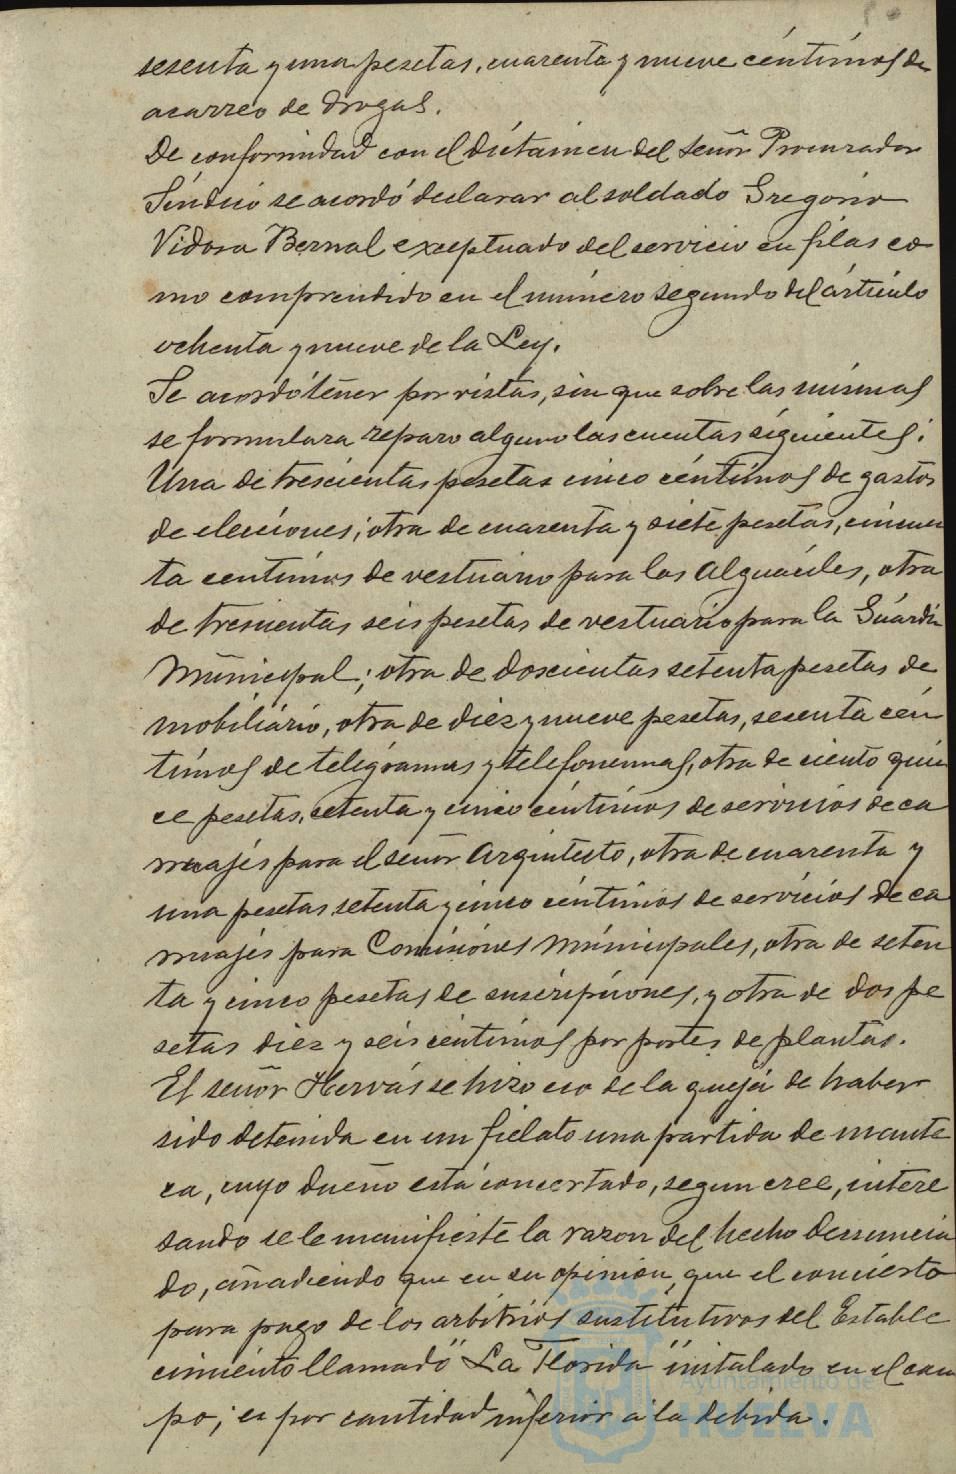 sesenta y una pesetas, cuarenta y nueve céntimos de
acarreo de drogas.
De conformidad con el dictamen del Señor Procurador
Síndico se acordó declarar al soldado Gregorio
Vidosa Bernal exceptuado del servicio en filas co
mo comprendido en el número segundo del artículo
ochenta y nueve de la Ley.
Se acordó tener por vistas, sin que sobre las mismas
se formulara reparo alguno las cuentas siguientes:
Una de trescientas pesetas cinco céntimos de gastos
de elecciones; otra de cuarenta y siete pesetas, cincuen
ta centimos de vestuario para los Alguaciles, otra
de trescientas seis pesetas de vestuario para la Guardia
Municipal; otra de doscientas setenta pesetas de
mobiliario, otra de diez y nueve pesetas, sesenta cén
timos de telégramas y telefonemas, otra de ciento quin
ce pesetas, setenta y cinco céntimos de servicios de ca
rruajes para el señor Arquitecto, otra de cuarenta y
una pesetas setenta y cinco céntimos de servicios de ca
rruajes para Comisiones Municipales, otra de seten
ta y cinco pesetas de suscripciones, y otra de dos pe
setas diez y seis céntimos por portes de plantas.
El señor Hervás se hizo eco de la queja de haber
sido detenida en un fielato una partida de mante
ca, cuyo dueño está concertado, segun cree, intere
sando se le manifieste la razon del hecho denuncia
do, añadiendo que en su opinion, que el concierto
para pago de los arbitrios sustitutivos del Estable
cimiento llamado "La Florida" instalado en el cam
po; es por cantidad inferior a la debida.
Ayuntamiento de
HUELVA